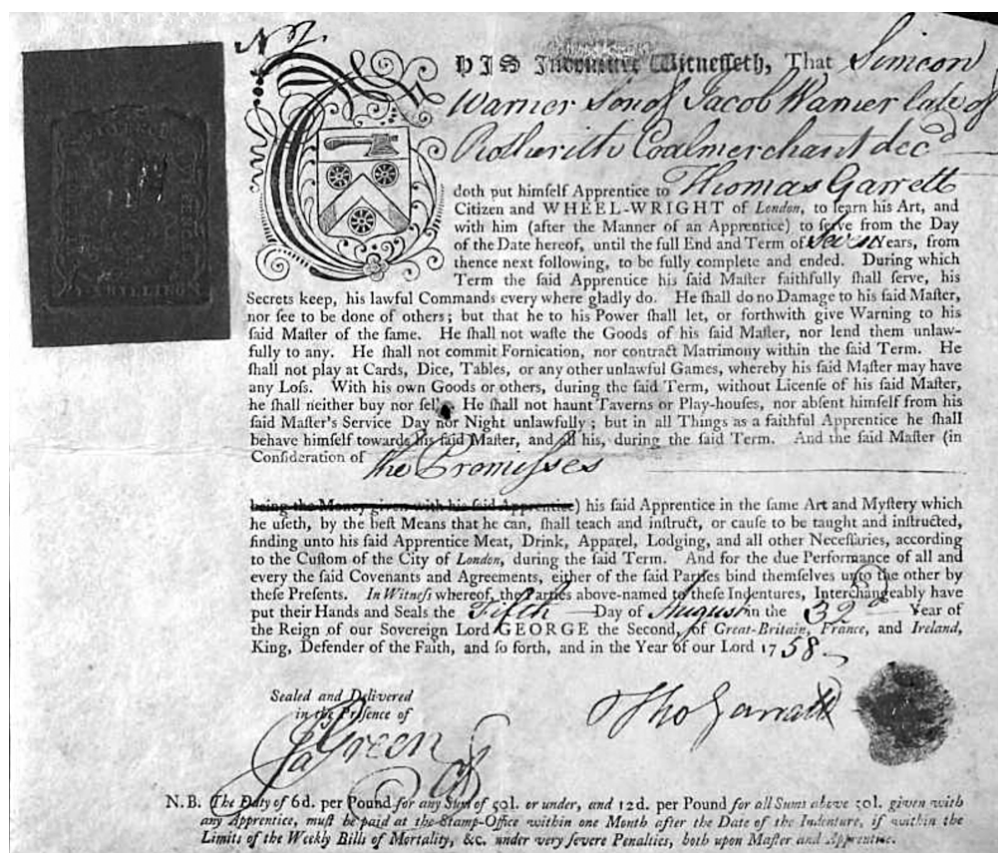 No.
THIS Indenture Witneſſeth, That Simeon
Warner Son of Jacob Warner late of
Rotherith Coalmerchant decd
doth put himſelf Apprentice to Thomas Garrett
Citizen and WHEEL-WRIGHT of London, to learn his Art, and
with him (after the Manner of an Apprentice) to ſerve from the Day
of the Date hereof, until the full End and Term of Seven Years, from
thence next following, to be fully complete and ended. During which
Term the ſaid Apprentice his ſaid Maſter faithfully ſhall ſerve, his
Secrets keep, his lawful Commands every where gladly do. He ſhall do no Damage to his ſaid Maſter,
nor ſee to be done of others; but that he to his Power ſhall let, or forthwith give Warning to his
ſaid Maſter of the ſame. He ſhall not waſte the Goods of his ſaid Maſter, nor lend them unlaw-
fully to any. He ſhall not commit Fornication, nor contract Matrimony within the ſaid Term. He
ſhall not play at Cards, Dice, Tables, or any other unlawful Games, whereby his ſaid Maſter may have
any Loſs. With his own Goods or others, during the ſaid Term, without Licenſe of his ſaid Maſter,
he ſhall neither buy nor ſell. He ſhall not haunt Taverns or Play-houſes, nor abſent himſelf from his
ſaid Maſter's Service Day nor Night unlawfully; but in all Things as a faithful Apprentice he ſhall
behave himſelf towards his ſaid Maſter, and all his, during the ſaid Term. And the ſaid Maſter (in
Conſideration of the Promiſses
being the Money given with his ſaid Apprentice) his ſaid Apprentice in the ſame Art and Myſtery which
he uſeth, by the beſt Means that he can, ſhall teach and inſtruct, or cauſe to be taught and inſtructed,
finding unto his ſaid Apprentice Meat, Drink, Apparel, Lodging, and all other Neceſſaries, according
to the Cuſtom of the City of London, during the ſaid Term. And for the due Performance of all and
every the ſaid Covenants and Agreements, either of the ſaid Parties bind themſelves unto the other by
theſe Preſents. In Witneſs whereof, the Parties above-named to theſe Indentures, Interchangeably have
put their Hands and Seals the Fifth Day of August in the 32d Year of
the Reign of our Sovereign Lord GEORGE the Second, of Great-Britain, France, and Ireland,
King, Defender of the Faith, and ſo forth, and in the Year of our Lord 1758
Sealed and Delivered
in the Preſence of
Tho Garratt
Ja Green
N.B. The Duty of 6d. per Pound for any Sum of 50l. or under, and 12d. per Pound for all Sums above 50l. given with
any Apprentice, muſt be paid at the Stamp-Office within one Month after the Date of the Indenture, if within the
Limits of the Weekly Bills of Mortality, &c. under very ſevere Penalties, both upon Maſter and Apprentice.